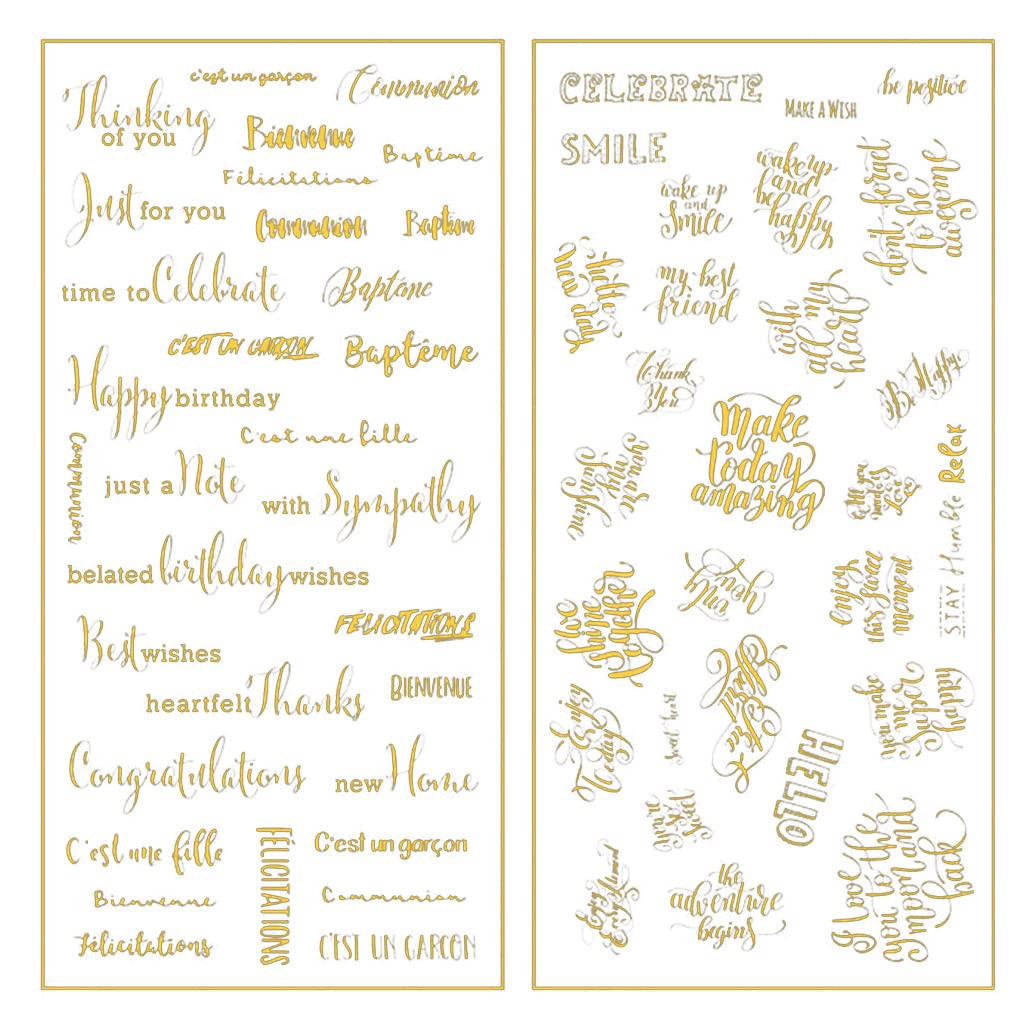 c'est un garçon
Communion
Thinking
of you
Bienvenue
Baptême
Félicitations
Just for you
Communion
Baptême
time to Celebrate
Baptême
C'EST UN GARÇON
Baptême
Happy birthday
C'est une fille
Communion
just a Note
with Sympathy
belated birthday wishes
FÉLICITATIONS
Best wishes
BIENVENUE
heartfelt Thanks
Congratulations
new Home
C'est une fille
FÉLICITATIONS
C'est un garçon
Bienvenue
Communion
félicitations
C'EST UN GARÇON
CELEBRATE
be positive
MAKE A WISH
SMILE
wake up
and
Smile
wake up
and
be
happy
don't forget
to be
awesome
my best
friend
with
all my
heart
Thank
You
Be Happy
Make
today
amazing
you are
my
Sunshine
Relax
STAY Humble
enjoy
this sweet
moment
live
shine
together
you
make
super
happy
Enjoy
Today
Sweet heart
HELLO
I love
you to the
moon and
back
Enjoy
Every Moment
the
adventure
begins